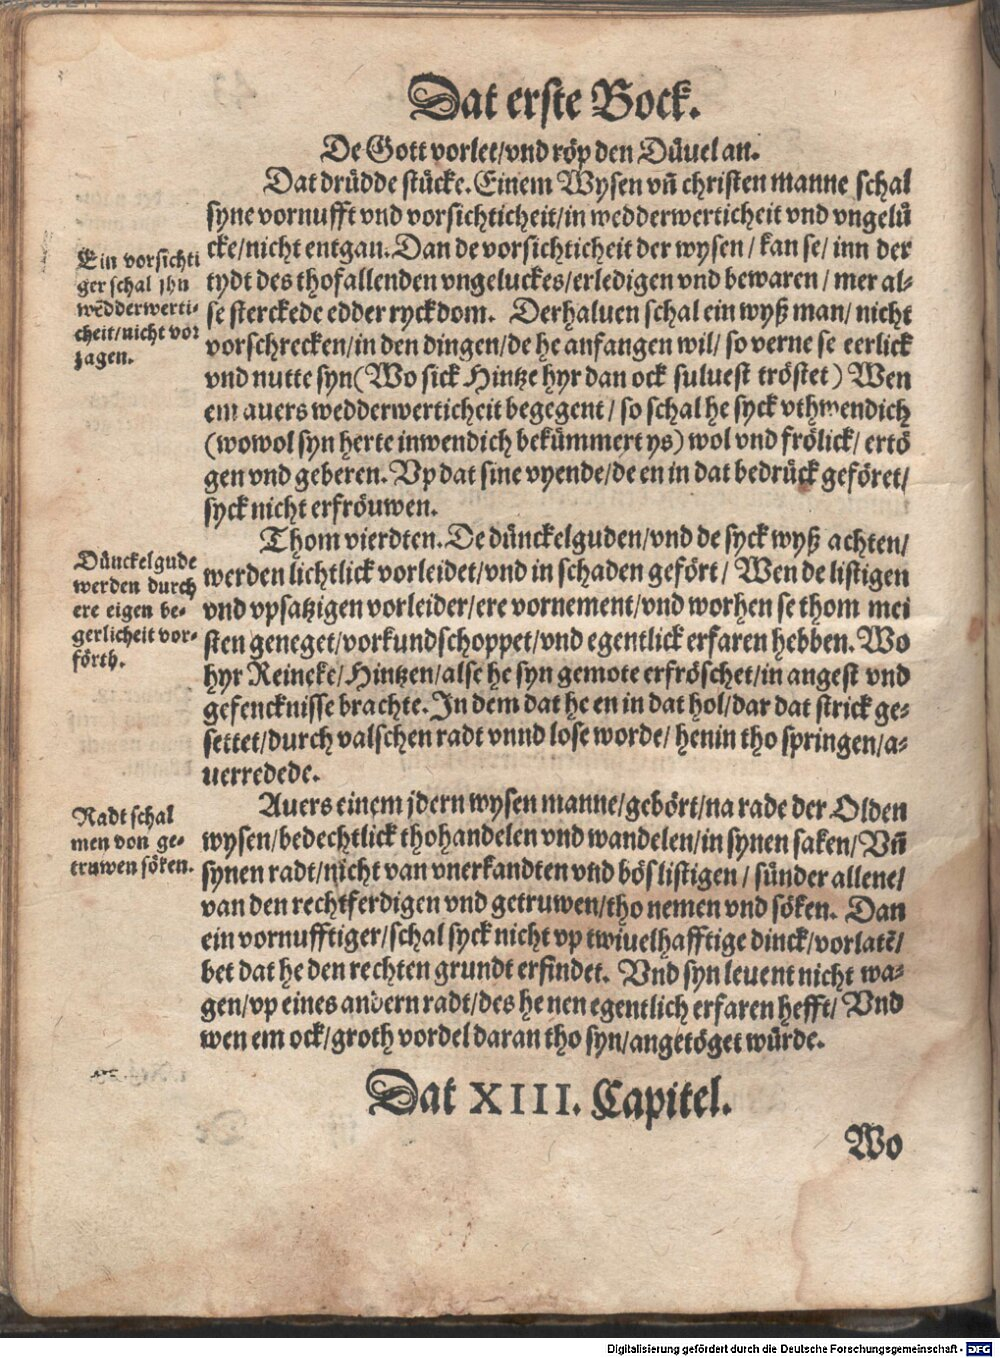 Dat erste Bock.
De Gott vorlet/vnd röp den Düuel an.
Dat drüdde stücke. Einem Wysen vn̄ christen manne schal
syne vornufft vnd vorsichticheit/in wedderwerticheit vnd vngelü
cke/nicht entgan. Dan de vorsichticheit der wysen/ kan se/ inn der
tydt des thofallenden vngeluckes/erledigen vnd bewaren/ mer al-
se sterckede edder ryckdom. Derhaluen schal ein wyß man/ nicht
vorschrecken/in den dingen/de he anfangen wil/ so verne se eerlick
vnd nutte syn(Wo sick Hintze hyr dan ock suluest tröstet) Wen
em auers wedderwerticheit begegent/ so schal he syck vthwendich
(wowol syn herte inwendich bekümmert ys) wol vnd frölick/ ertö
gen vnd geberen. Vp dat sine vyende/de en in dat bedrück geföret/
syck nicht erfröuwen.
Ein vorsichti
ger schal jhn
wedderwerti-
cheit/nicht vor
zagen.
Thom vierdten. De dünckelguden/vnd de syck wyß achten/
werden lichtlick vorleidet/vnd in schaden gefört/ Wen de listigen
vnd vpsatzigen vorleider/ere vornement/vnd worhen se thom mei
sten geneget/vorkundschoppet/vnd egentlick erfaren hebben. Wo
hyr Reineke/Hintzen/alse he syn gemote erfröschet/in angest vnd
gefencknisse brachte. In dem dat he en in dat hol/dar dat strick ge-
settet/durch valschen radt vnnd lose worde/ henin tho springen/a-
uerredede.
Dünckelgude
werden durch
ere eigen be-
gerlicheit vor-
förth.
Auers einem jdern wysen manne/gebört/na rade der Olden
wysen/bedechtlick thohandelen vnd wandelen/in synen saken/Vn̄
synen radt/nicht van vnerkandten vnd böslistigen/ sünder allene/
van den rechtferdigen vnd getruwen/tho nemen vnd söken. Dan
ein vornufftiger/schal syck nicht vp twiuelhafftige dinck/vorlatē/
bet dat he den rechten grundt erfindet. Vnd syn leuent nicht wa-
gen/vp eines andern radt/des he nen egentlich erfaren hefft/ Vnd
wen em ock/groth vordel daran tho syn/angetöget würde.
Radt schal
men von ge-
truwen söken.
Dat XIII. Capitel.
Wo
Digitalisierung gefördert durch die Deutsche Forschungsgemeinschaft - DFG